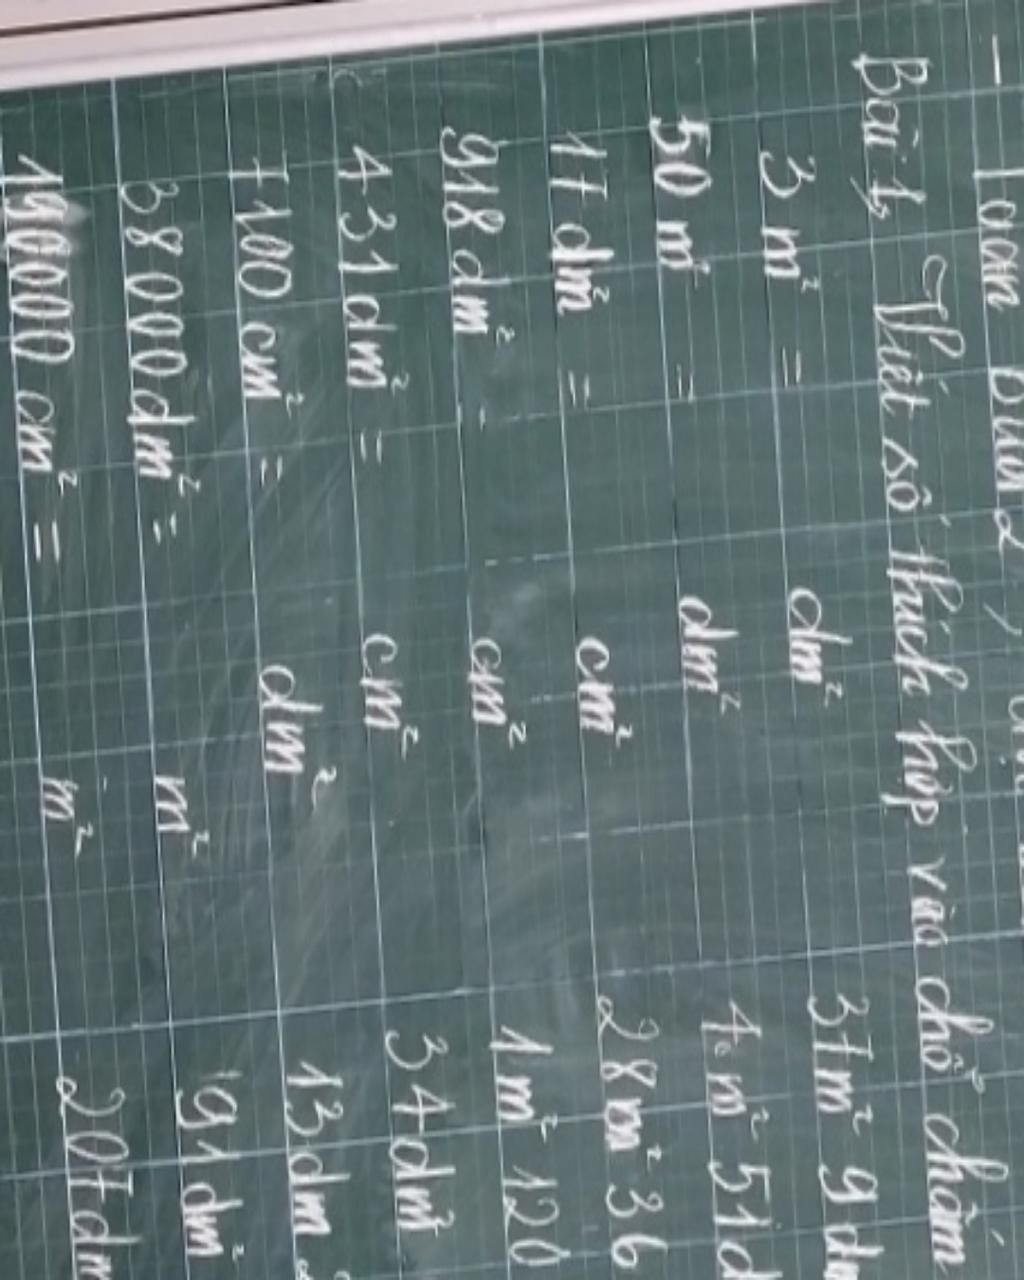 - Toán Buổi 2
Bài 1, Viết số thích hợp vào chỗ chấm
3 m² = dm² 37m² 9 dm
50 m² = dm² 4 m² 51 d
17 dm² = cm² 28 m² 36
918 dm² = cm² 1m² 120
431 dm² = cm² 34 dm²
7100 cm² = dm² 13 dm²
38000 dm² = m² 91 dm²
190000 cm² = m² 207 dm